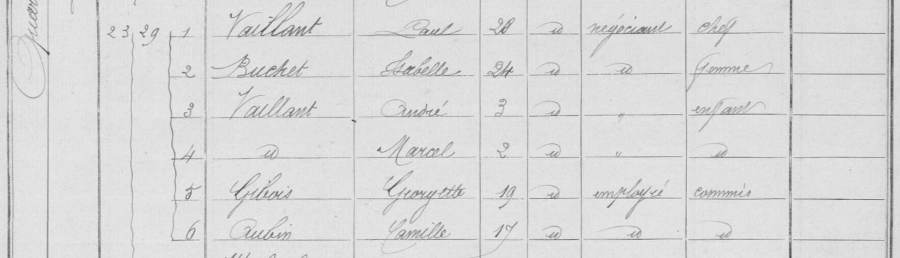 23 29 1 Vaillant Paul 28 id négociant chef
2 Buchet Isabelle 24 id id femme
3 Vaillant André 3 id " enfant
4 id Marcel 2 id " id
5 Gibois Georgette 19 id employé commis
6 Aubin Camille 17 id id id